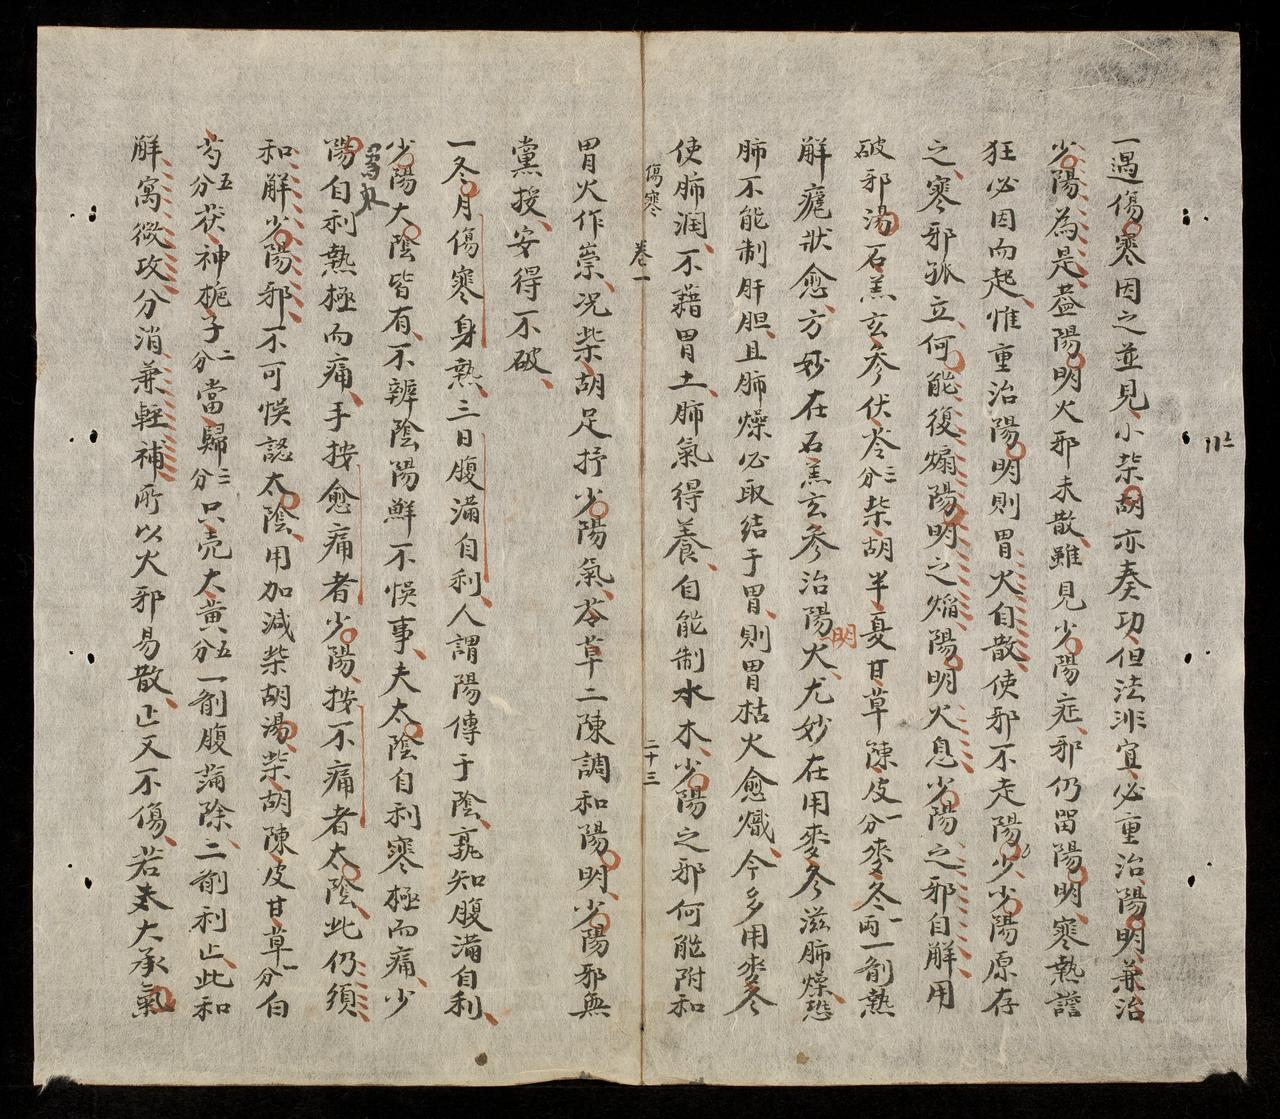 一遇傷寒因之並見小柴胡亦奏功但法非宜必重治陽明兼治
少陽為是葢陽明火邪未散雖見少陽症邪仍畱陽明寒熱譫
狂必因而起惟重治陽明則胃火自散使邪不走陽少少陽原存
之寒邪孤立何能復煽陽明之焰陽明火息少陽之邪自解用
破邪湯石羔玄參伏苓二分柴胡半夏甘草陳皮一分麥冬一兩一劑熱
解癍狀愈方妙在石羔玄參治陽明火尤妙在用麥冬滋肺燥恐
肺不能制肝胆且肺燥必取結于胃則胃枯火愈熾今多用麥冬
使肺潤不藉胃土肺氣得養自能制水木少陽之邪何能附和
傷寒 卷一 二十三
胃火作祟况柴胡足抒少陽氣苓草二陳調和陽明少陽邪無
黨援安得不破
一冬月傷寒身熱三日腹滿自利人謂陽傳于陰孰知腹滿自利
少陽大陰皆有不辨陰陽鮮不悞事夫太陰自利寒極而痛少
陽自利熱極而痛手按愈痛者少陽按不痛者太陰此仍須
和解少陽邪不可悞認太陰用加減柴胡湯柴胡陳皮甘草一分白
芍五分茯神梔子二分當歸三分只壳大黄五分一劑腹滿除二劑利止此和
解寓微攻分消兼輕補所以火邪易散正又不傷若大承氣